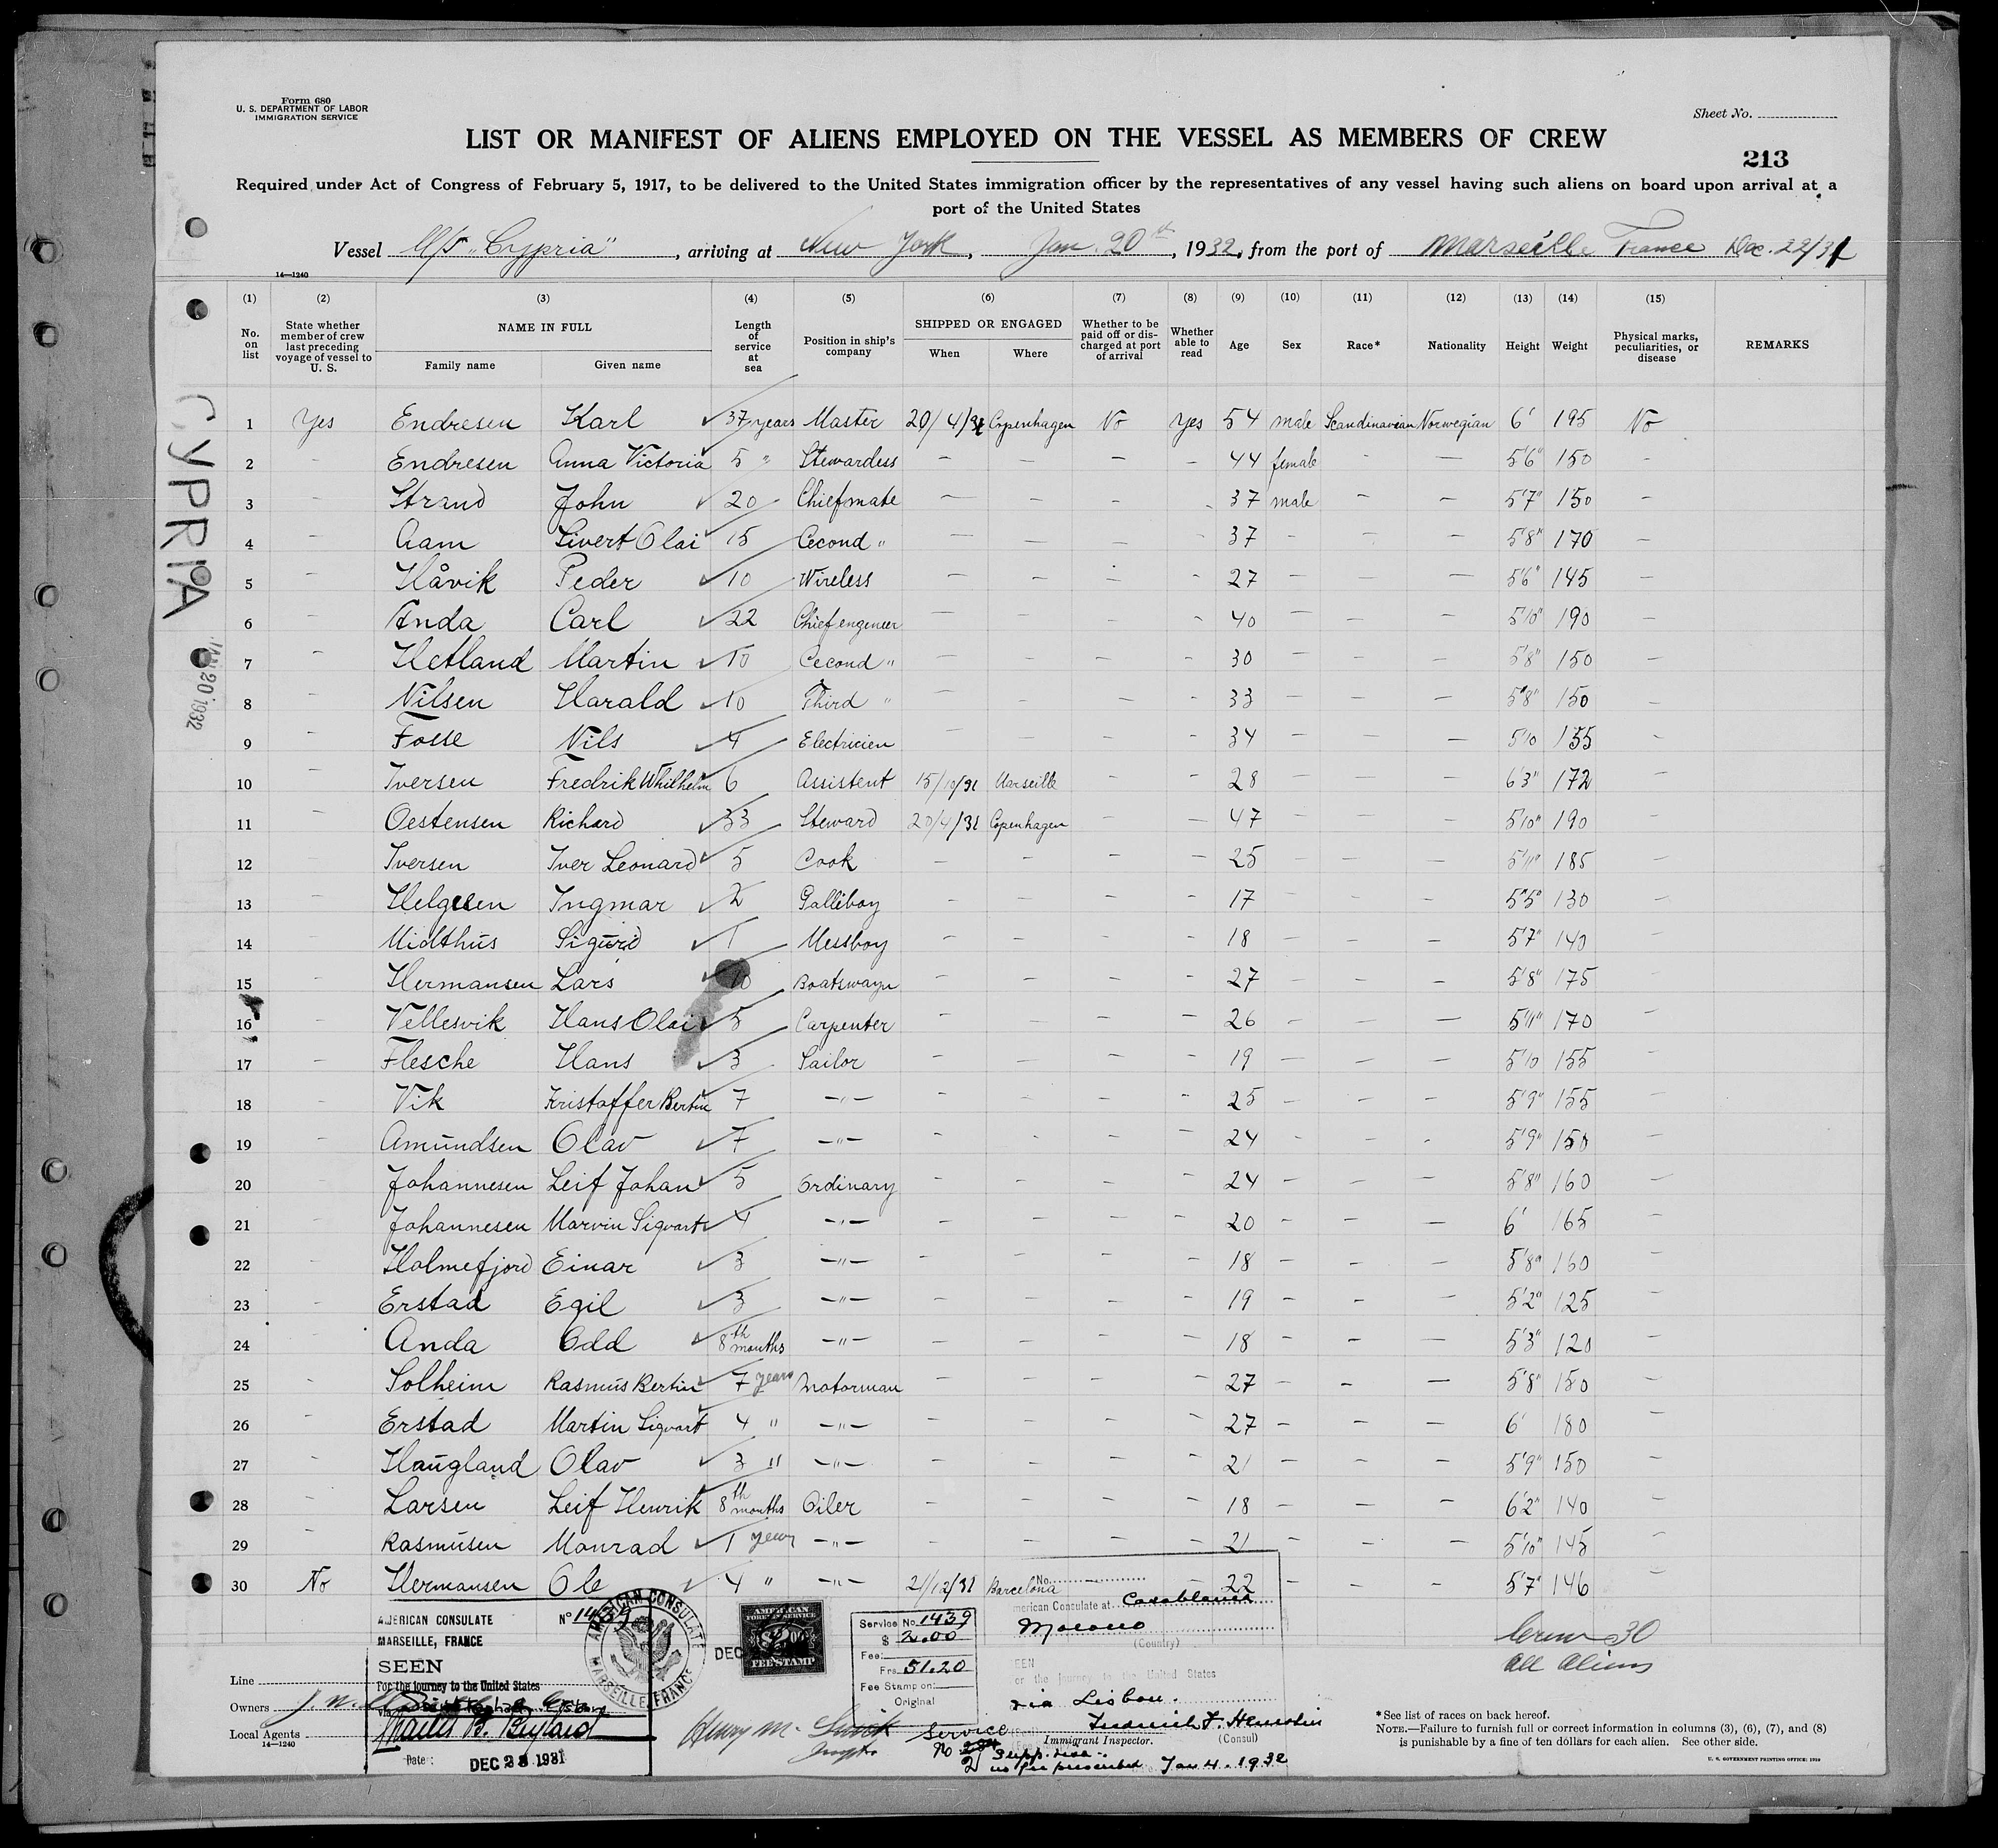 Form 680
U. S. DEPARTMENT OF LABOR
IMMIGRATION SERVICE
Sheet No.
LIST OR MANIFEST OF ALIENS EMPLOYED ON THE VESSEL AS MEMBERS OF CREW
213
Required under Act of Congress of February 5, 1917, to be delivered to the United States immigration officer by the representatives of any vessel having such aliens on board upon arrival at a
port of the United States
Vessel M/S "Cypria", arriving at New York, Jan. 20th, 1932, from the port of Marseille France Dec. 22/31
14—1240
(1) (2) (3) (4) (5) (6) (7) (8) (9) (10) (11) (12) (13) (14) (15)
No. on list
State whether member of crew last preceding voyage of vessel to U. S.
NAME IN FULL
Family name Given name
Length of service at sea
Position in ship's company
SHIPPED OR ENGAGED
When Where
Whether to be paid off or discharged at port of arrival
Whether able to read
Age Sex Race* Nationality Height Weight
Physical marks, peculiarities, or disease
REMARKS
CYPRIA
JAN 20 1932
1 Yes Endresen Karl 37 years Master 20/4/31 Copenhagen No Yes 54 male Scandinavian Norwegian 6' 195 No
2 - Endresen Anna Victoria 5 " Stewardess - - - - 44 female - - 5'6" 150 -
3 - Strand John 20 Chiefmate - - - - 37 male - - 5'7" 150 -
4 - Aam Sivert Olai 15 Cecond " - - - - 37 - - - 5'8" 170 -
5 - Håvik Peder 10 Wireless - - - - 27 - - - 5'6" 145 -
6 - Anda Carl 22 Chief engeneer - - - - 40 - - - 5'10" 190 -
7 - Hetland Martin 10 Cecond " - - - - 30 - - - 5'8" 150 -
8 - Nilsen Harald 10 Third " - - - - 33 - - - 5'8" 150 -
9 - Fosse Nils 4 Electricien - - - - 34 - - - 5'10 155 -
10 - Iversen Fredrik Whilhelm 6 Assistent 15/10/31 Marseille - - 28 - - - 6'3" 172 -
11 - Oestensen Richard 33 Steward 20/4/31 Copenhagen - - 47 - - - 5'10" 190 -
12 - Iversen Iver Leonard 5 Cook - - - - 25 - - - 5'11" 185 -
13 - Helgesen Ingmar 2 Galliboy - - - - 17 - - - 5'5" 130 -
14 - Midthus Sigurd 1 Messboy - - - - 18 - - - 5'7" 140 -
15 - Hermansen Lars 10 Boatswayn - - - - 27 - - - 5'8" 175 -
16 - Vellesvik Hans Olai 5 Carpenter - - - - 26 - - - 5'11" 170 -
17 - Flesche Hans 3 Sailor - - - - 19 - - - 5'10 155 -
18 - Vik Kristoffer Bertin 7 -"- - - - - 25 - - - 5'9" 155 -
19 - Amundsen Olav 7 -"- - - - - 24 - - - 5'9" 150 -
20 - Johannesen Leif Johan 5 Ordinary - - - - 24 - - - 5'8" 160 -
21 - Johannesen Marvin Sigvart 4 -"- - - - - 20 - - - 6' 165 -
22 - Holmefjord Einar 3 -"- - - - - 18 - - - 5'8" 160 -
23 - Erstad Egil 3 -"- - - - - 19 - - - 5'2" 125 -
24 - Anda Odd 8th months -"- - - - - 18 - - - 5'3" 120 -
25 - Solheim Rasmus Bertin 7 years Motorman - - - - 27 - - - 5'8" 150 -
26 - Erstad Martin Sigvart 4 " -"- - - - - 27 - - - 6' 180 -
27 - Haugland Olav 3 " -"- - - - - 21 - - - 5'9" 150 -
28 - Larsen Leif Henrik 8th months Oiler - - - - 18 - - - 6'2" 140 -
29 - Rasmusen Monrad 1 year -"- - - - - 21 - - - 5'10" 145 -
30 No Hermansen Ole 4 " -"- 21/12/31 Barcelona - 22 - - - 5'7" 146 -
Crew 30
All Aliens
AMERICAN CONSULATE No 1439
MARSEILLE, FRANCE
SEEN
For the journey to the United States
Date: DEC 23 1931
AMERICAN CONSULATE MARSEILLE, FRANCE
DEC
AMERICAN FOREIGN SERVICE
$2.00
FEE STAMP
Service No. 1439
$ 2.00
Fee:
Frs. 51.20
Fee Stamp on:
Original
No.
American Consulate at Casablanca
Morocco
(Country)
SEEN
for the journey to the United States
via Lisbon.
(Consul)
Service No
Supp. visa
no fee prescribed Jan 4. 1932
Line
Owners
Local Agents
14—1240
Henry M. Smith
Immigrant Inspector.
*See list of races on back hereof.
NOTE.—Failure to furnish full or correct information in columns (3), (6), (7), and (8)
is punishable by a fine of ten dollars for each alien. See other side.
U. S. GOVERNMENT PRINTING OFFICE: 1929